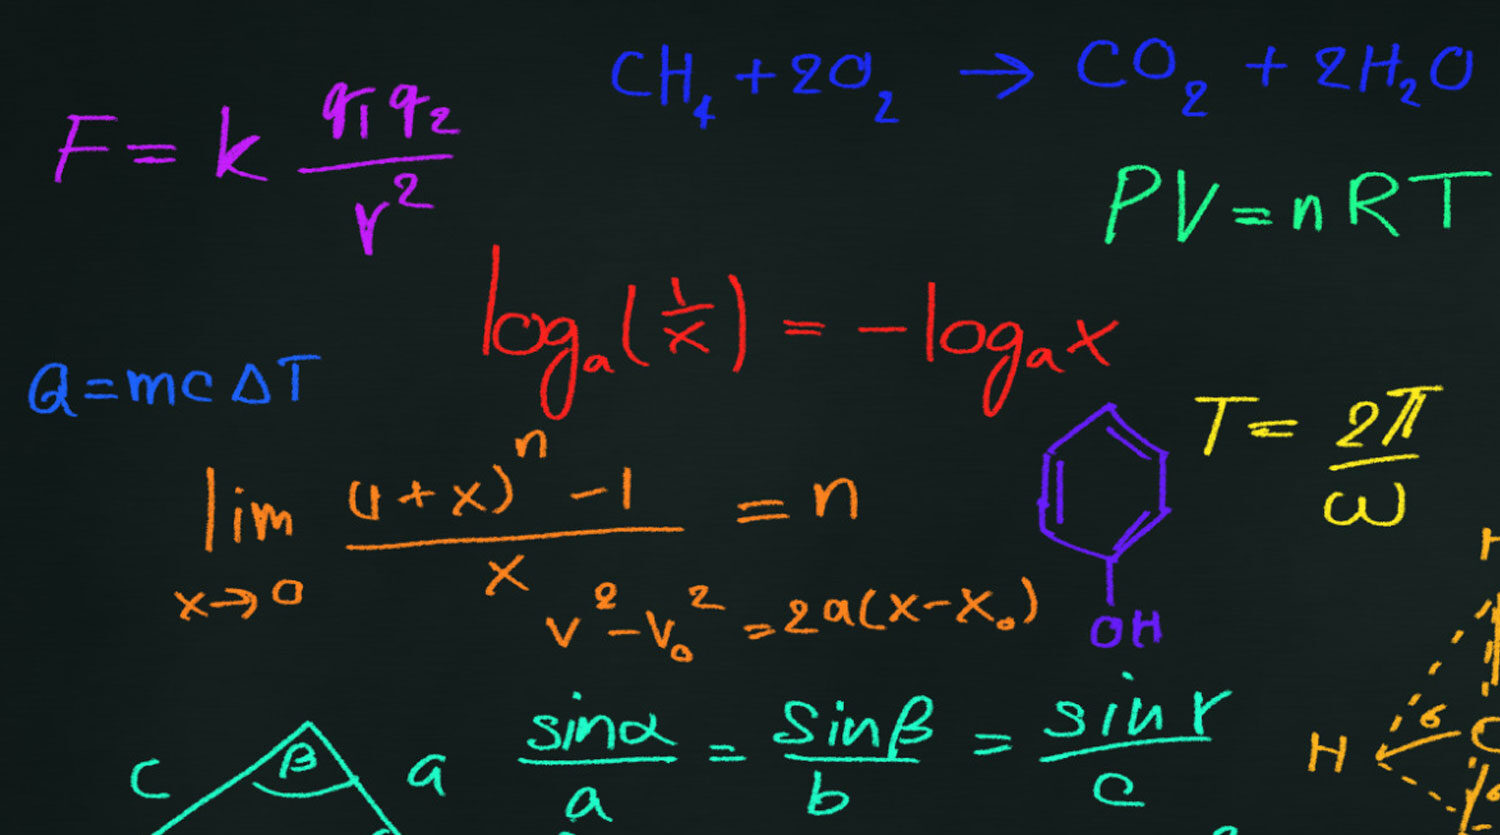 CH₄ + 2O₂ → CO₂ + 2H₂O
F = k q₁q₂ / r²
PV = nRT
logₐ(1/x) = -logₐx
Q = mcΔT
T = 2π / ω
lim x→0 ((1+x)ⁿ - 1) / x = n
v² - v₀² = 2a(x - x₀)
OH
H
sinα / a = sinβ / b = sinγ / c
c β a
H σ C